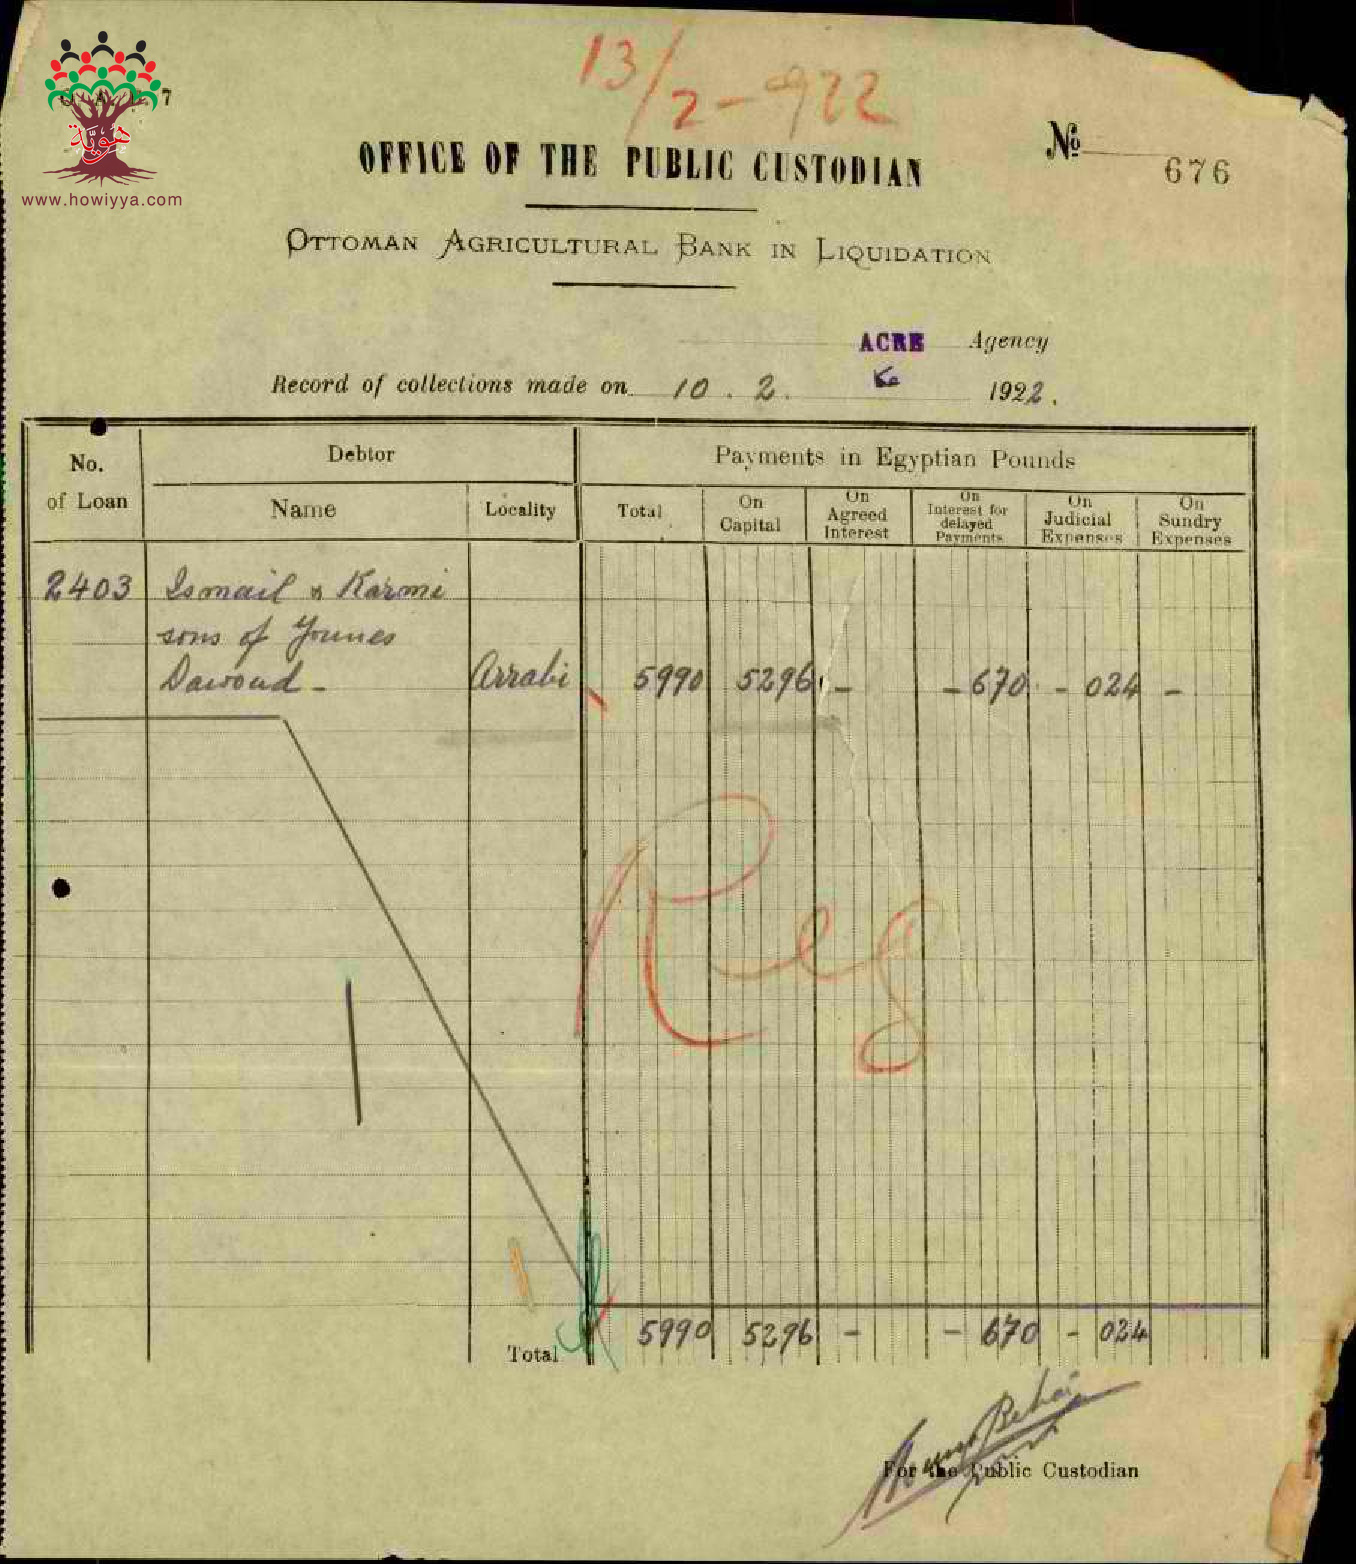 13/2-922
7
هويّة
www.howiyya.com
OFFICE OF THE PUBLIC CUSTODIAN
No 676
OTTOMAN AGRICULTURAL BANK IN LIQUIDATION
ACRE Agency
Record of collections made on 10 . 2 . 1922 .
No. of Loan
Debtor
Payments in Egyptian Pounds
Name
Locality
Total
On Capital
On Agreed Interest
On Interest for delayed Payments
On Judicial Expenses
On Sundry Expenses
2403 Ismail & Karmi
sons of Younes
Dawoud - Arrabi 5990 5296 - - 670 - 024 -
Reg
Total 5990 5296 - - 670 - 024
For the Public Custodian